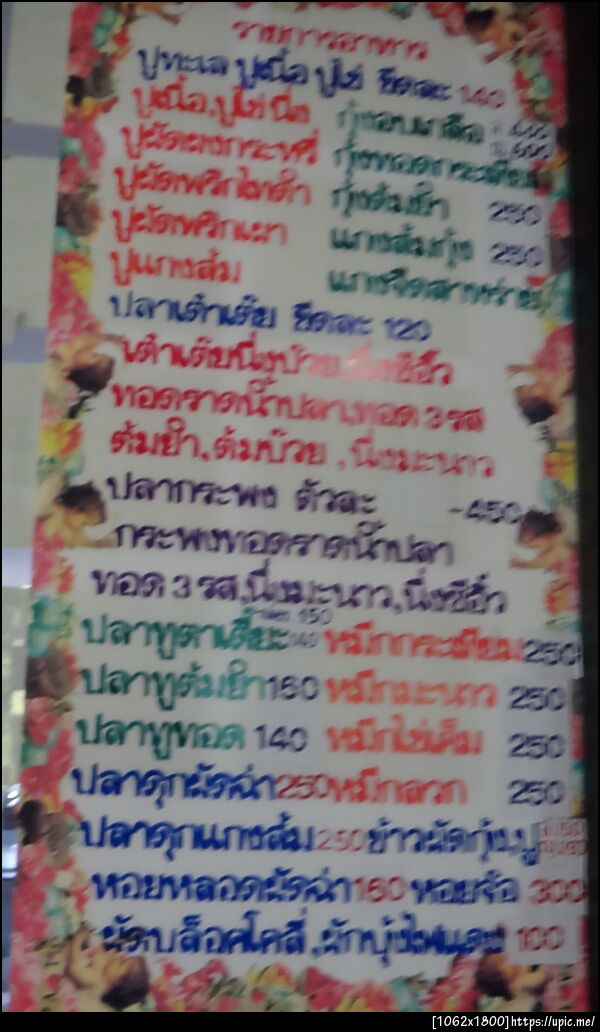 รายการอาหาร
ปูทะเล ปูเนื้อ ปูไข่ ขีดละ 140
ปูเนื้อ,ปูไข่ นึ่ง กุ้งอบเกลือ
ปูผัดผงกระหรี่ กุ้งทอดกระเทียม
ปูผัดพริกไทดำ กุ้งต้มยำ 250
ปูผัดพริกเผา แกงส้มกุ้ง 250
ปูแกงส้ม แกงจืดสาหร่าย
ปลาเต๋าเต้ย ขีดละ 120
เต๋าเต้ยนึ่งบ๊วย,นึ่งซีอิ๊ว
ทอดราดน้ำปลา,ทอด 3 รส
ต้มยำ,ต้มบ๊วย,นึ่งมะนาว
ปลากระพง ตัวละ -450
กระพงทอดราดน้ำปลา
ทอด 3 รส,นึ่งมะนาว,นึ่งซีอิ๊ว
150
ปลาทูตาเตี๊ยะ 140 หมึกกระเทียม 250
ปลาทูต้มยำ 160 หมึกมะนาว 250
ปลาทูทอด 140 หมึกไข่เค็ม 250
ปลาดุกผัดฉ่า 250 หมึกลวก 250
ปลาดุกแกงส้ม 250 ข้าวผัดกุ้ง,ปู
หอยหลอดผัดฉ่า 160 หอยจ้อ 300
ผัดบล็อคโคลี่,ผักบุ้งไฟแดง 100
[1062x1800]https://upic.me/